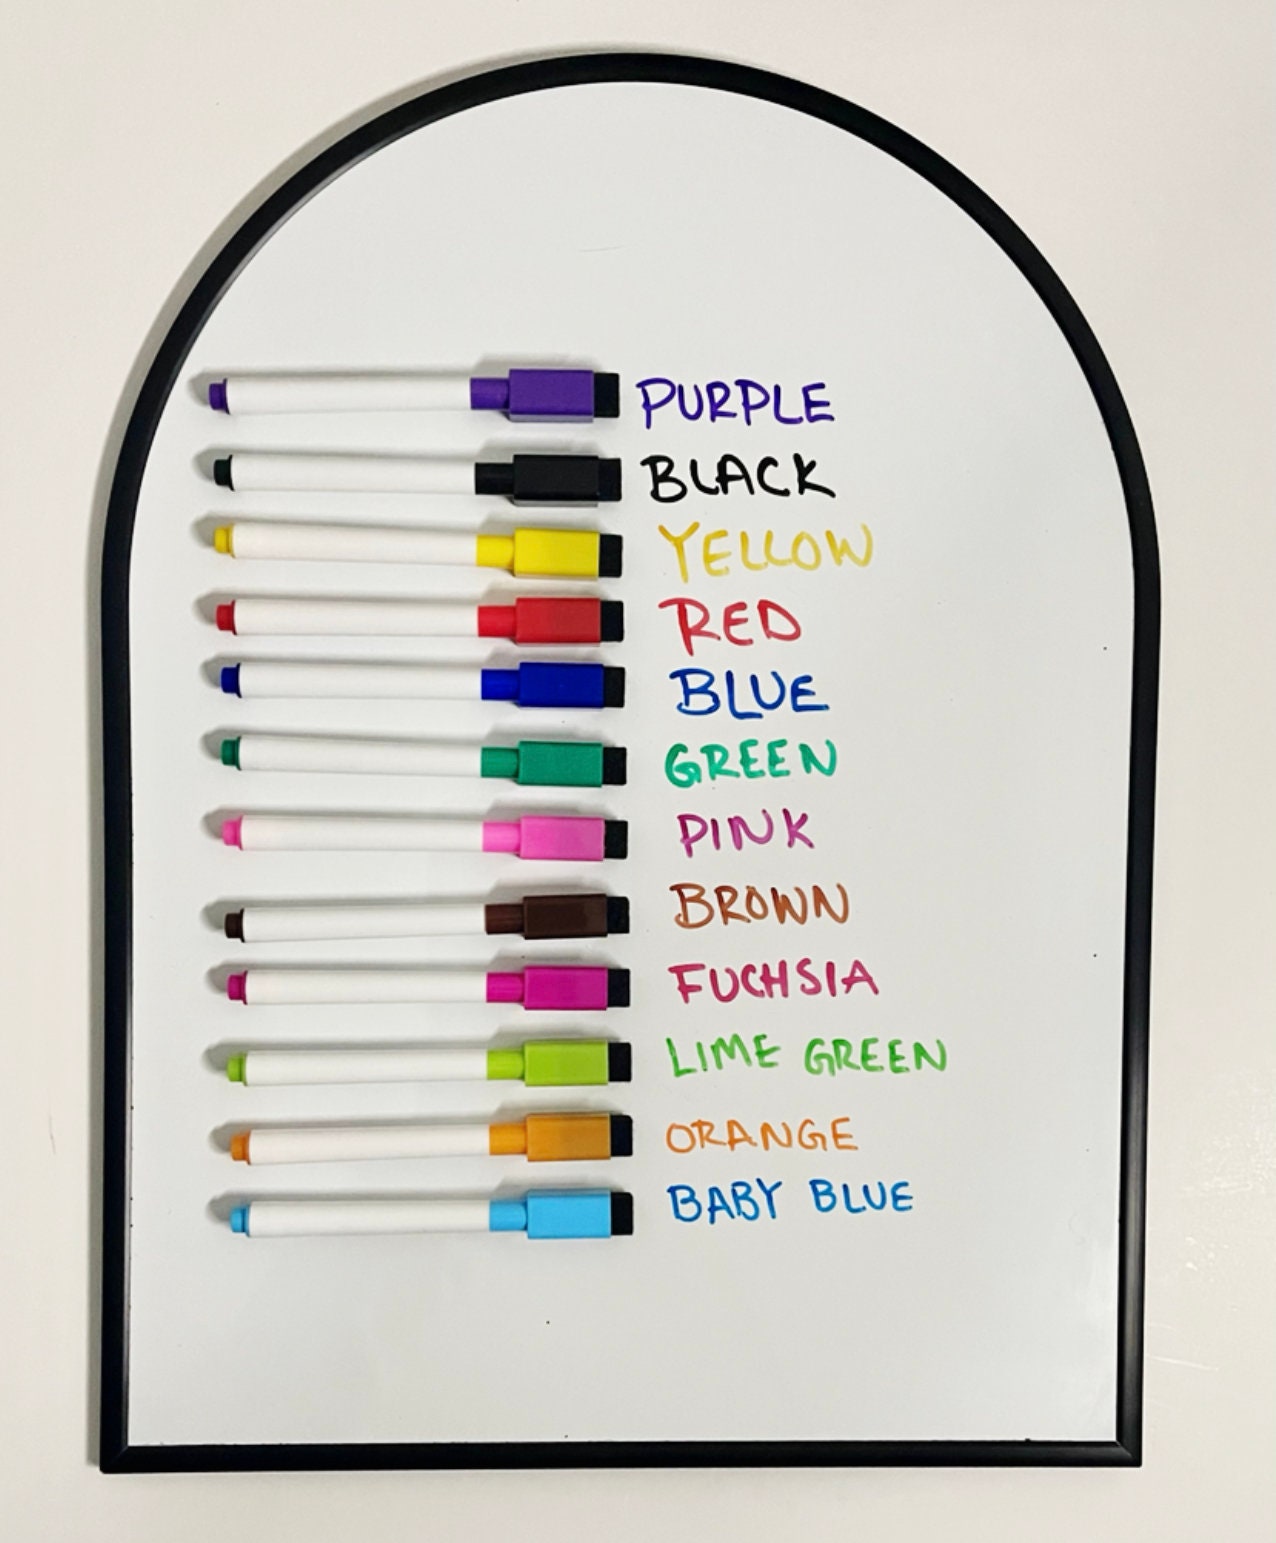 PURPLE
BLACK
YELLOW
RED
BLUE
GREEN
PINK
BROWN
FUCHSIA
LIME GREEN
ORANGE
BABY BLUE